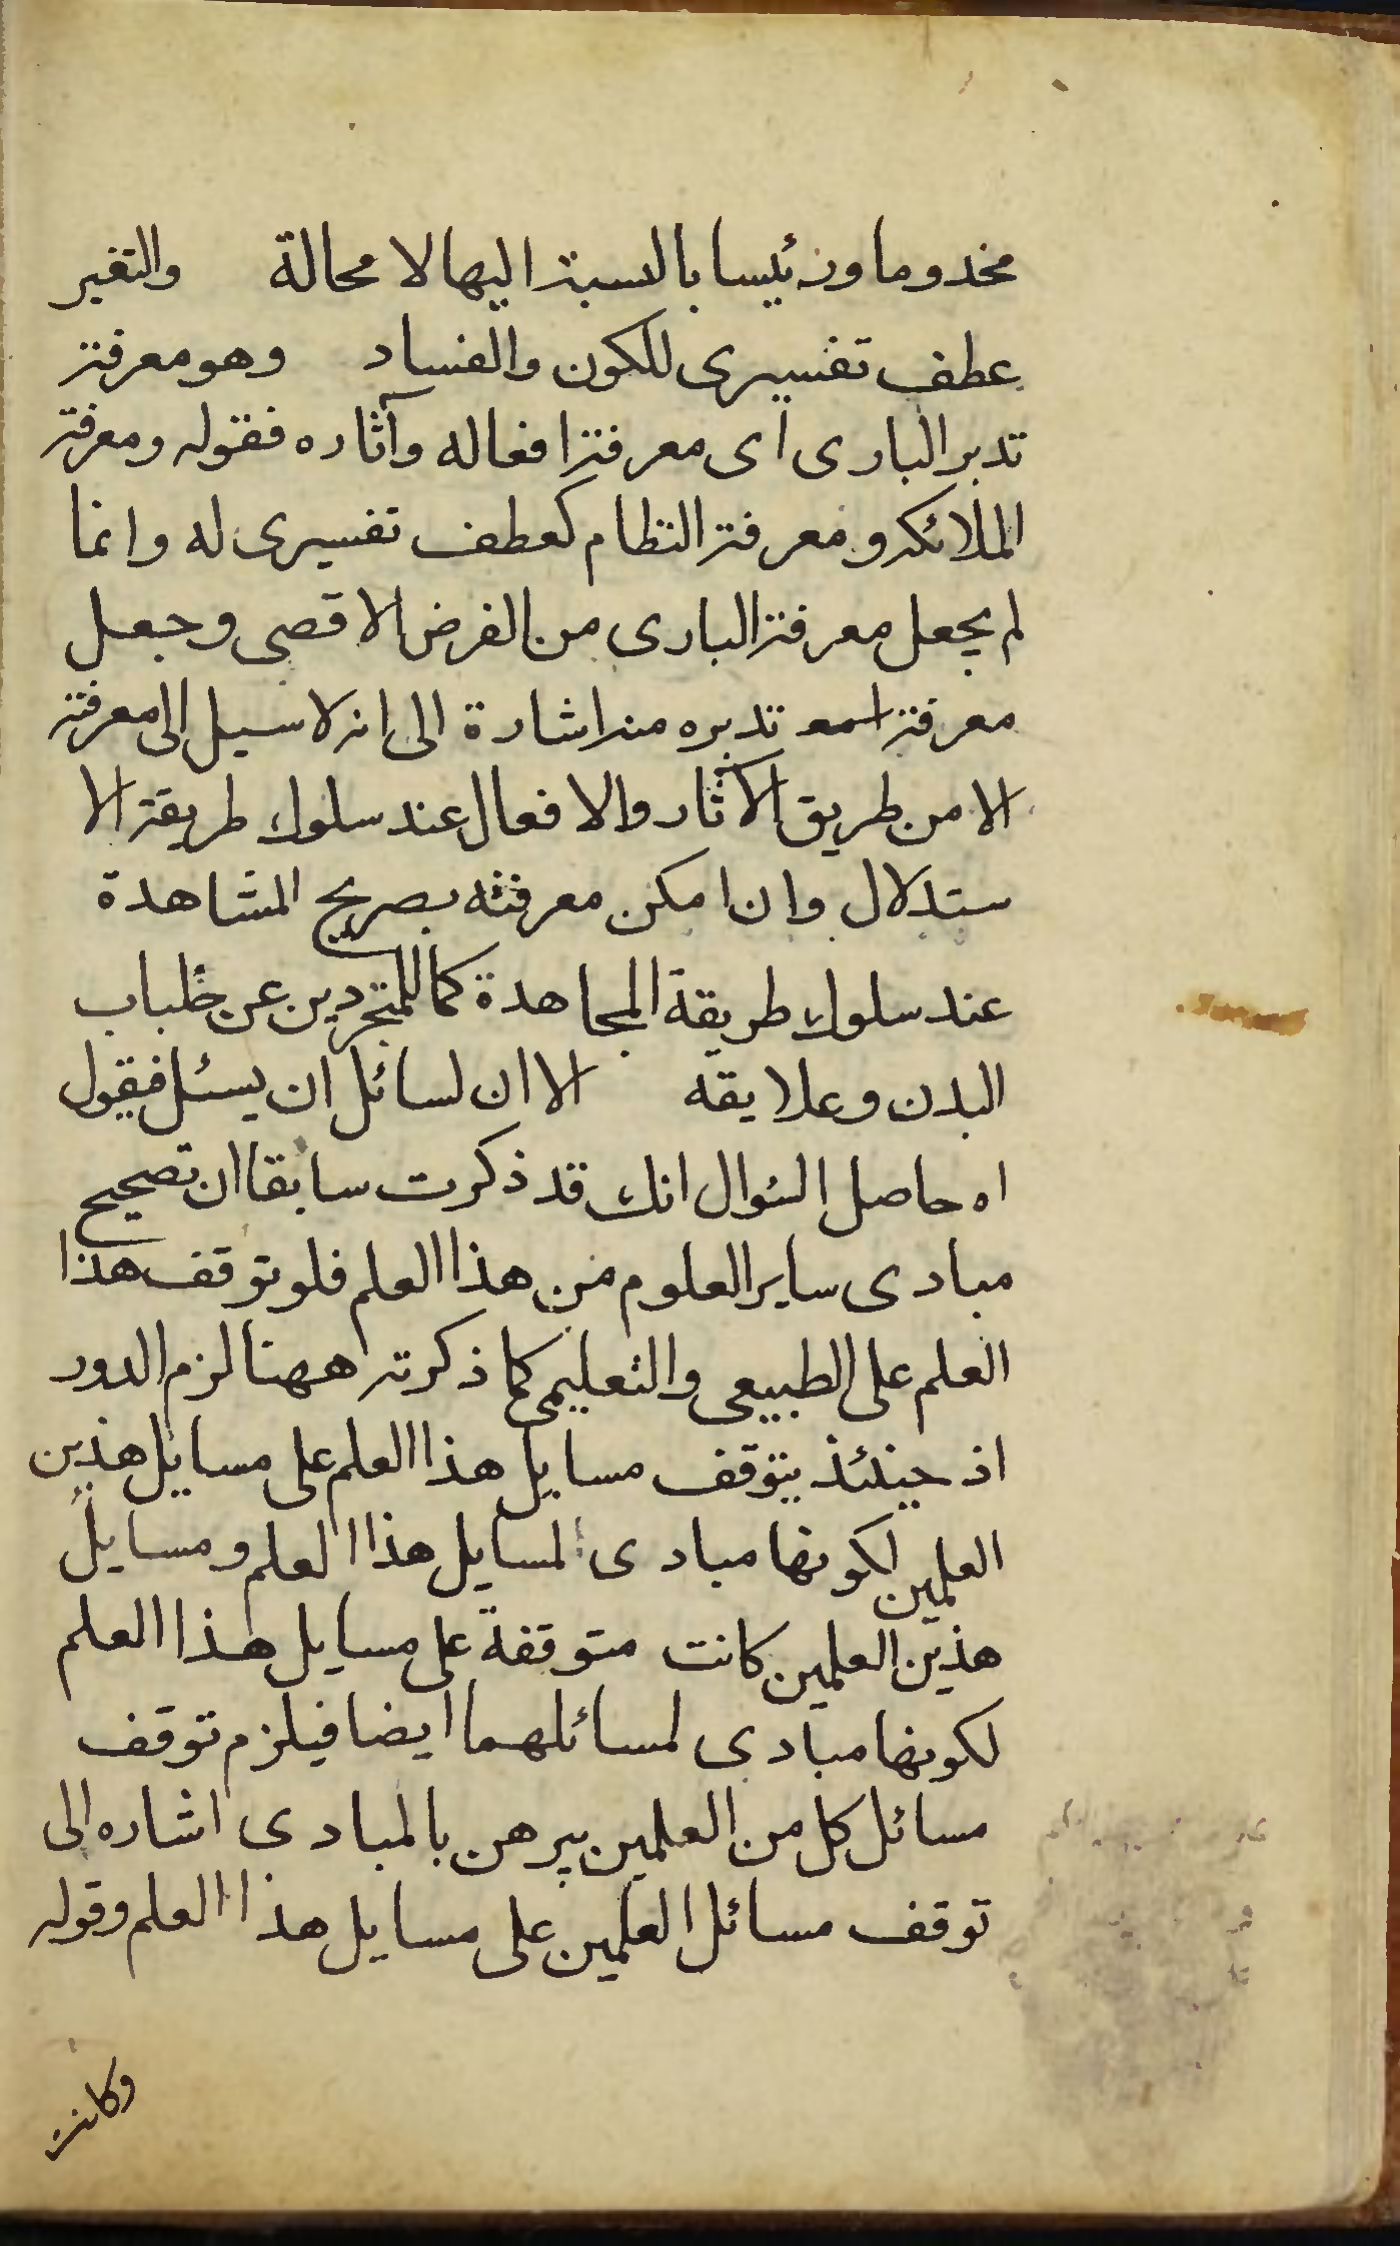 مخدوما ورئيسا بالنسبة اليها لا محالة والتغير
عطف تفسيرى للكون والفساد وهو معرفة
تدبر البارى اى معرفة افعاله وآثاره فقوله ومعرفة
الملائكة ومعرفة النظام كعطف تفسيرى له وانما
لم يجعل معرفة البارى من الغرض الاقصى وجعل
معرفة تدبره منه اشارة الى انه لا سبيل الى معرفته
الا من طريق الآثار والافعال عند سلوك طريقة الا
ستدلال وان امكن معرفته بصريح المشاهدة
عند سلوك طريقة المجاهدة كما للمتجردين عن جلباب
البدن وعلايقه الا ان لسائل ان يسئل فيقول
اه حاصل السؤال انك قد ذكرت سابقا ان تصحيح
مبادى ساير العلوم من هذا العلم فلو توقف هذا
العلم على الطبيعى والتعليمى كما ذكرته ههنا لزم الدور
اذ حينئذ يتوقف مسايل هذا العلم على مسايل هذين
العلمين لكونها مبادى لمسايل هذا العلم ومسايل
هذين العلمين كانت متوقفة على مسايل هذا العلم
لكونها مبادى لمسائلهما ايضا فيلزم توقف
مسائل كل من العلمين يبرهن بالمبادى اشاره الى
توقف مسائل العلمين على مسايل هذا العلم وقوله
وكانت